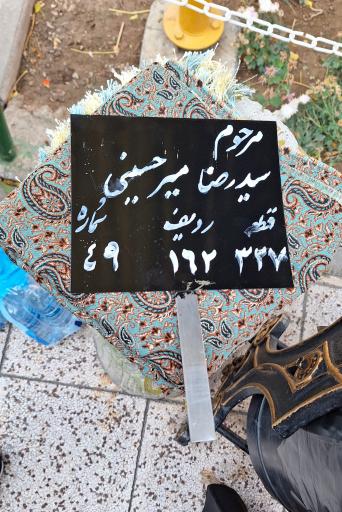 مرحوم
سیدرضا میرحسینی
قطعه ردیف شماره
۳۲۷ ۱۶۲ ۴۹